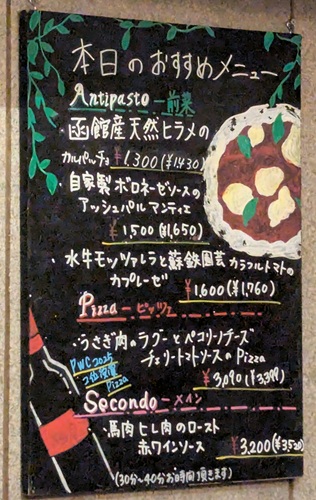 本日のおすすめメニュー
Antipasto ー前菜
・函館産天然ヒラメの
カルパッチョ ¥1,300(¥1430)
・自家製ボロネーゼソースの
アッシュパルマンティエ
¥1500(¥1,650)
・水牛モッツァレラと蘇鉄園芸カラフルトマトの
カプレーゼ
¥1,600(¥1,760)
Pizza ーピッツァ
・うさぎ肉のラグーとペコリーノチーズ
チェリートマトソースのPizza
PWC 2025
2位受賞
Pizza
¥3,090(¥3,399)
Secondo ーメイン
・馬肉ヒレ肉のロースト
赤ワインソース ¥3,200(¥3,520)
(30分〜40分お時間頂きます)